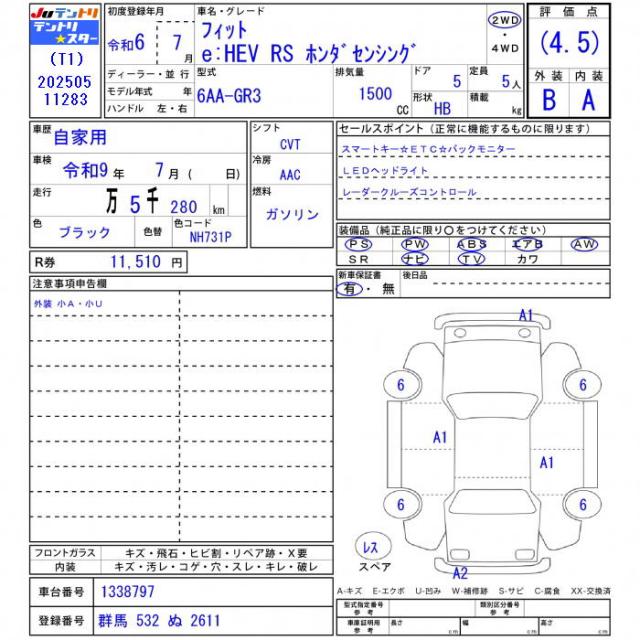 JUテントリ
テントリ★スター
(T1)
202505
11283
初度登録年月
令和6 7月
ディーラー・並行
モデル年式 年
ハンドル 左・右
車名・グレード
フィット
e:HEV RS ホンダセンシング
2WD
・
4WD
型式
6AA-GR3
排気量
1500 CC
ドア 5
形状 HB
定員 5人
積載 kg
評価点
(4.5)
外装 内装
B A
車歴 自家用
車検 令和9年 7月( 日)
走行 万 5千 280 km
色 ブラック 色替 色コード NH731P
シフト
CVT
冷房
AAC
燃料
ガソリン
R券 11,510 円
セールスポイント(正常に機能するものに限ります)
スマートキー☆ETC☆バックモニター
LEDヘッドライト
レーダークルーズコントロール
装備品(純正品に限り〇をつけてください)
PS PW ABS エアB AW
SR ナビ TV カワ
新車保証書
有・無
後日品
注意事項申告欄
外装 小A・小U
A1
6 6
A1
A1
6 6
レス
スペア
A2
フロントガラス キズ・飛石・ヒビ割・リペア跡・X要
内装 キズ・汚レ・コゲ・穴・スレ・キレ・破レ
A-キズ E-エクボ U-凹み W-補修跡 S-サビ C-腐食 XX-交換済
車台番号 1338797
登録番号 群馬 532 ぬ 2611
型式指定番号
参考
類別区分番号
参考
車庫証明用
参考
長さ cm 幅 cm 高さ cm